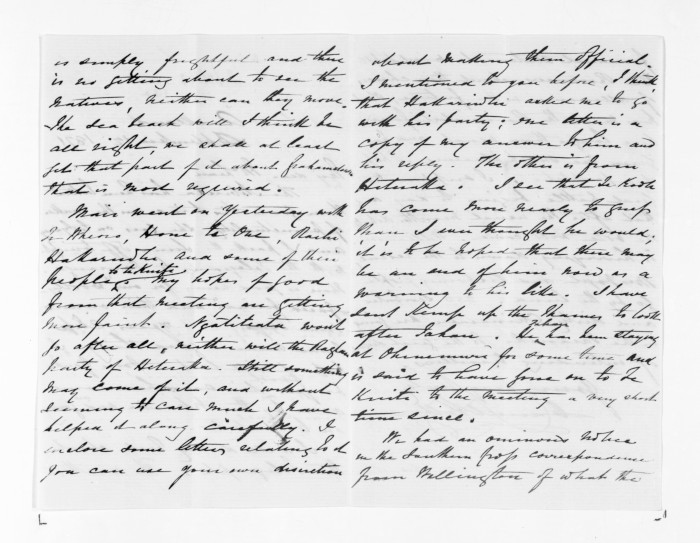 is simply frightful and there
is no getting about to see the
Natives, neither can they move.
The sea beach will I think be
all right, we shall at least
get that part of it about
that is most required.
Mair went on Yesterday with
Te Wheoro, Hone te One,
Hakaraia and some of their
People to te Kuiti. My hopes of good
from that meeting are getting
more faint. Ngatitata won't
go after all, neither will the
party of Heteraka. Still something
may come of it, and without
seeming to care much I have
helped it along carefully. I
enclose some letters relating to it
You can use your own discretion
about making them official.
I mentioned to you before, I think,
that Hakaraia asked me to go
with his party; one letter is a
copy of my answer to him and
his reply. The other is from
Heteraka. I see that Te Kooti
has come more nearly to grief
than I ever thought he would;
it is to be hoped that there may
be an end of him now as a
warning to his like. I have
sent Kemp up the Thames to look
after Ishan. He has been staying
at Ohinemuri for some time and
is said to have gone on to Te
Kuiti to the meeting a very short
time since.
We had an ominous notice
in the Southern Cross correspondence
from Wellington of what the